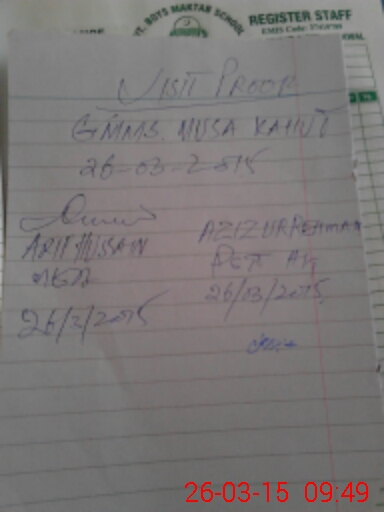 BOYS MAKTAB SCHOOL
REGISTER STAFF
EMIS Code:
VISIT PROOF
GMMS. MUSA KAHUT
26-03-2015
ARIF HUSSAIN
26/3/2015
AZIZURREHMAN
26/03/2015
26-03-15 09:49